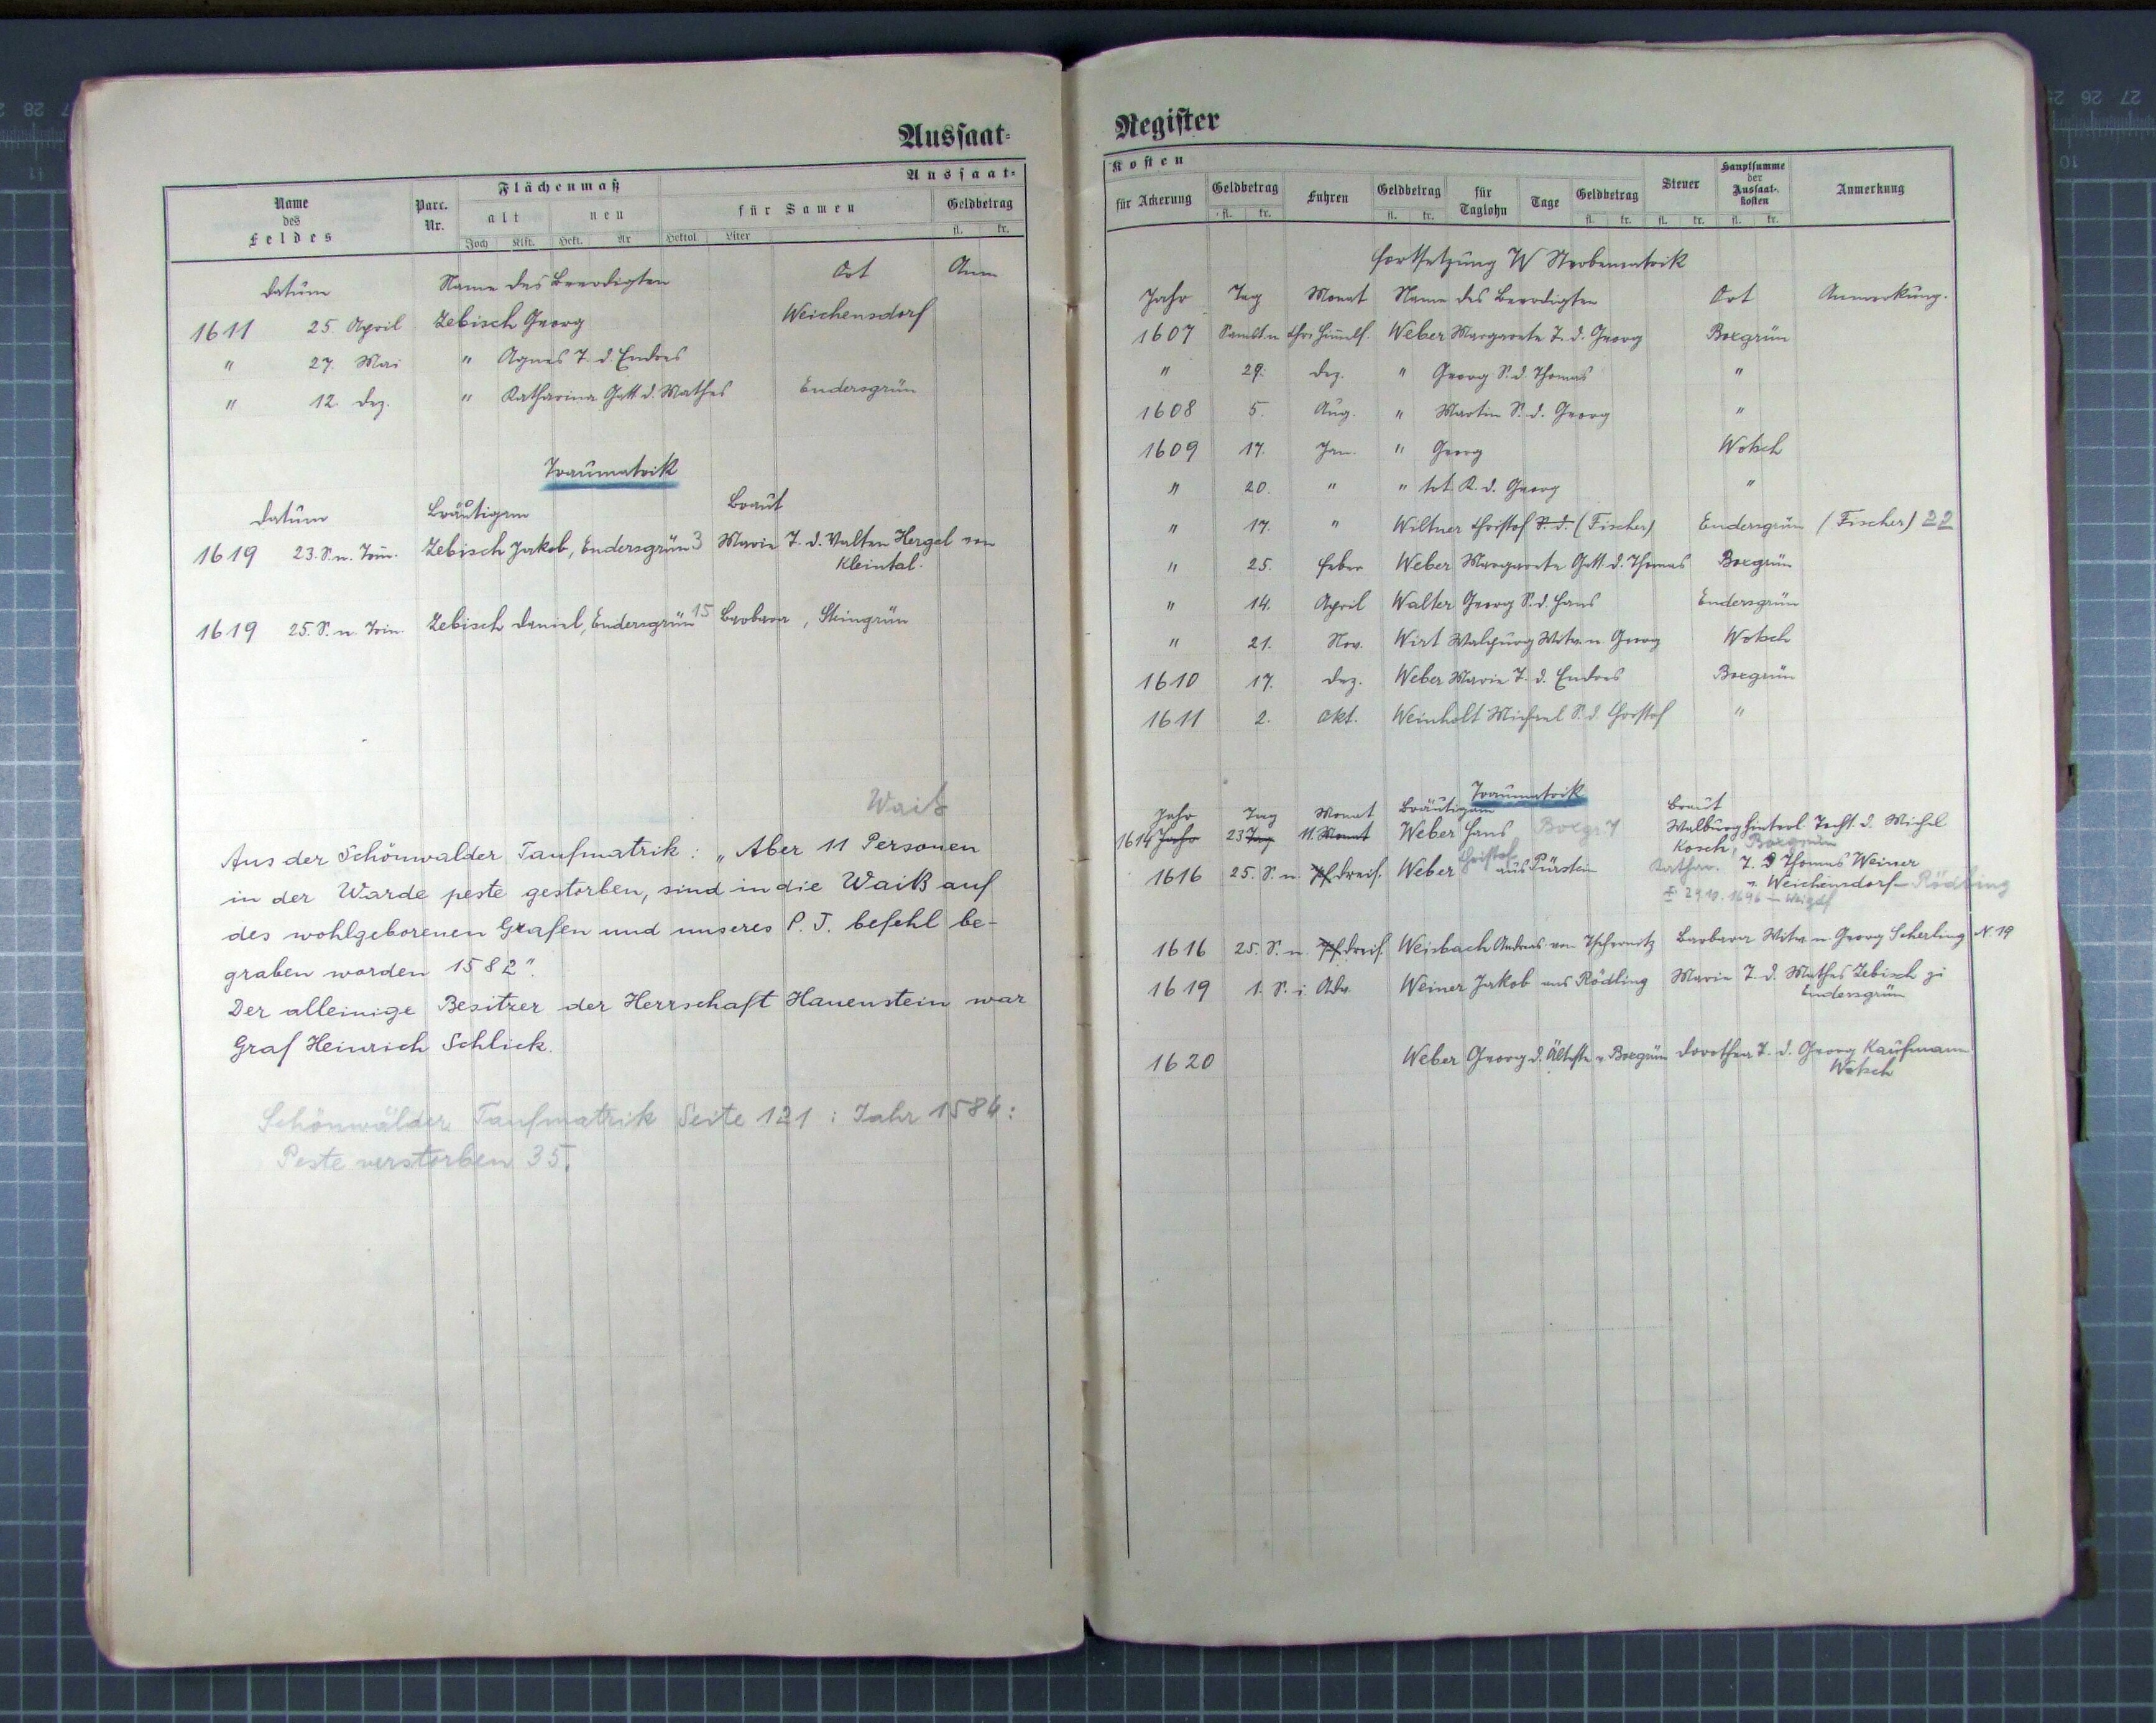 Aussaat-
Name des Feldes
Parc. Nr.
Flächenmaß
Aussaat-
alt
neu
für Samen
Geldbetrag
Joch Klft. Hekt. Ar Hektol Liter fl. kr.
Datum Name des Beerdigten Ort Anm
1611 25. April Zebisch Georg Weichensdorf
" 27. Mai " Agnes T. d. Endres
" 12. Dez. " Katharina Gatt d. Mathes Endersgrün
Traumatrik
Datum Bräutigam Braut
1619 23. S. n. Trin. Zebisch Jakob, Endersgrün 3 Marie T. d. Valten Hergel von
Kleintal.
1619 25. S. n. Trin. Zebisch Daniel, Endersgrün 15 Barbara, Steingrün
Waiß
Aus der Schönwalder Taufmatrik: „Aber 11 Personen
in der Warde peste gestorben, sind in die Waiß auf
des wohlgeborenen Grafen und unseres P. T. befehl be-
graben worden 1582".
Der alleinige Besitzer der Herrschaft Hauenstein war
Graf Heinrich Schlick.
Schönwälder Taufmatrik Seite 121 : Jahr 1584:
Peste verstorben 35.
Register
Kosten
für Ackerung
Geldbetrag
Fuhren
Geldbetrag
für Taglohn
Tage
Geldbetrag
Steuer
Hauptsumme der Aussaat-kosten
Anmerkung
fl. kr. fl. kr. fl. kr. fl. kr. fl. kr.
Fortsetzung W Sterbematrik
Jahr Tag Monat Name des Beerdigten Ort Anmerkung.
1607 n. Chri Himmelf. Weber Margareta T. d. Georg Boxgrün
" 29. Dez. " Georg S. d. Thomas "
1608 5. Aug. " Martin S. d. Georg "
1609 17. Jan. " Georg Wotsch
" 20. " " tot. K. d. Georg "
" 17. " Wiltner Christof S. d. (Fischer) Endersgrün (Fischer) 22
" 25. Feber Weber Margareta Gatt. d. Thomas Boxgrün
" 14. April Walter Georg S. d. Hans Endersgrün
" 21. Nov. Wirt Walpurg Witw. n. Georg Wotsch
1610 17. Dez. Weber Marie T. d. Endres Boxgrün
1611 2. Okt. Weinholt Michael S. d. Christof "
Traumatrik
Jahr Tag Monat Bräutigam Braut
1614 Jahr 23 Tag 11. Monat Weber Hans Boxgr 7 Walburg hinterl. Tocht. d. Michel
Kosch, Boxgrün
1616 25. S. n. Dreif. Weber Christof aus Pürstein Kathar. T. d Thomas Weiner
v. Weichensdorf - Rödling
1616 25. S. n. Dreif. Weisbach Andreas von Tschernitz Barbara Witw. n. Georg Scherling N. 19
1619 1. S. i. Adv. Weiner Jakob aus Rödling Marie T. d. Mathes Zebisch zu
Endersgrün
1620 Weber Georg d. Älteste v. Boxgrün Dorothea T. d. Georg Kaufmann
Wotsch